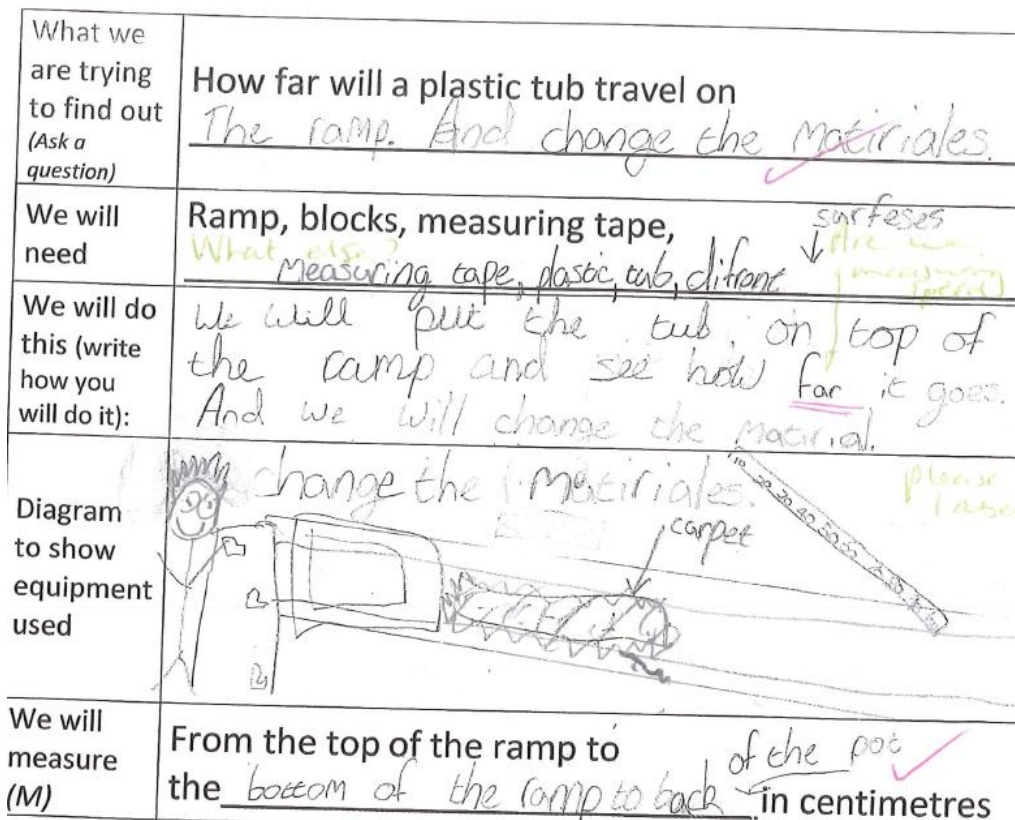 What we
are trying
to find out
(Ask a
question)
How far will a plastic tub travel on
The ramp. And change the matiriales.
We will
need
Ramp, blocks, measuring tape,
surfeses
What else?
Measuring tape, plastic, tub, difront
Are we
measuring
speed?
We will do
this (write
how you
will do it):
We will put the tub on top of
the ramp and see how far it goes.
And we will change the matirial.
Diagram
to show
equipment
used
change the matiriales.
please
carpet
10 20 30 40 50
We will
measure
(M)
From the top of the ramp to
of the pot
the bottom of the ramp to back in centimetres